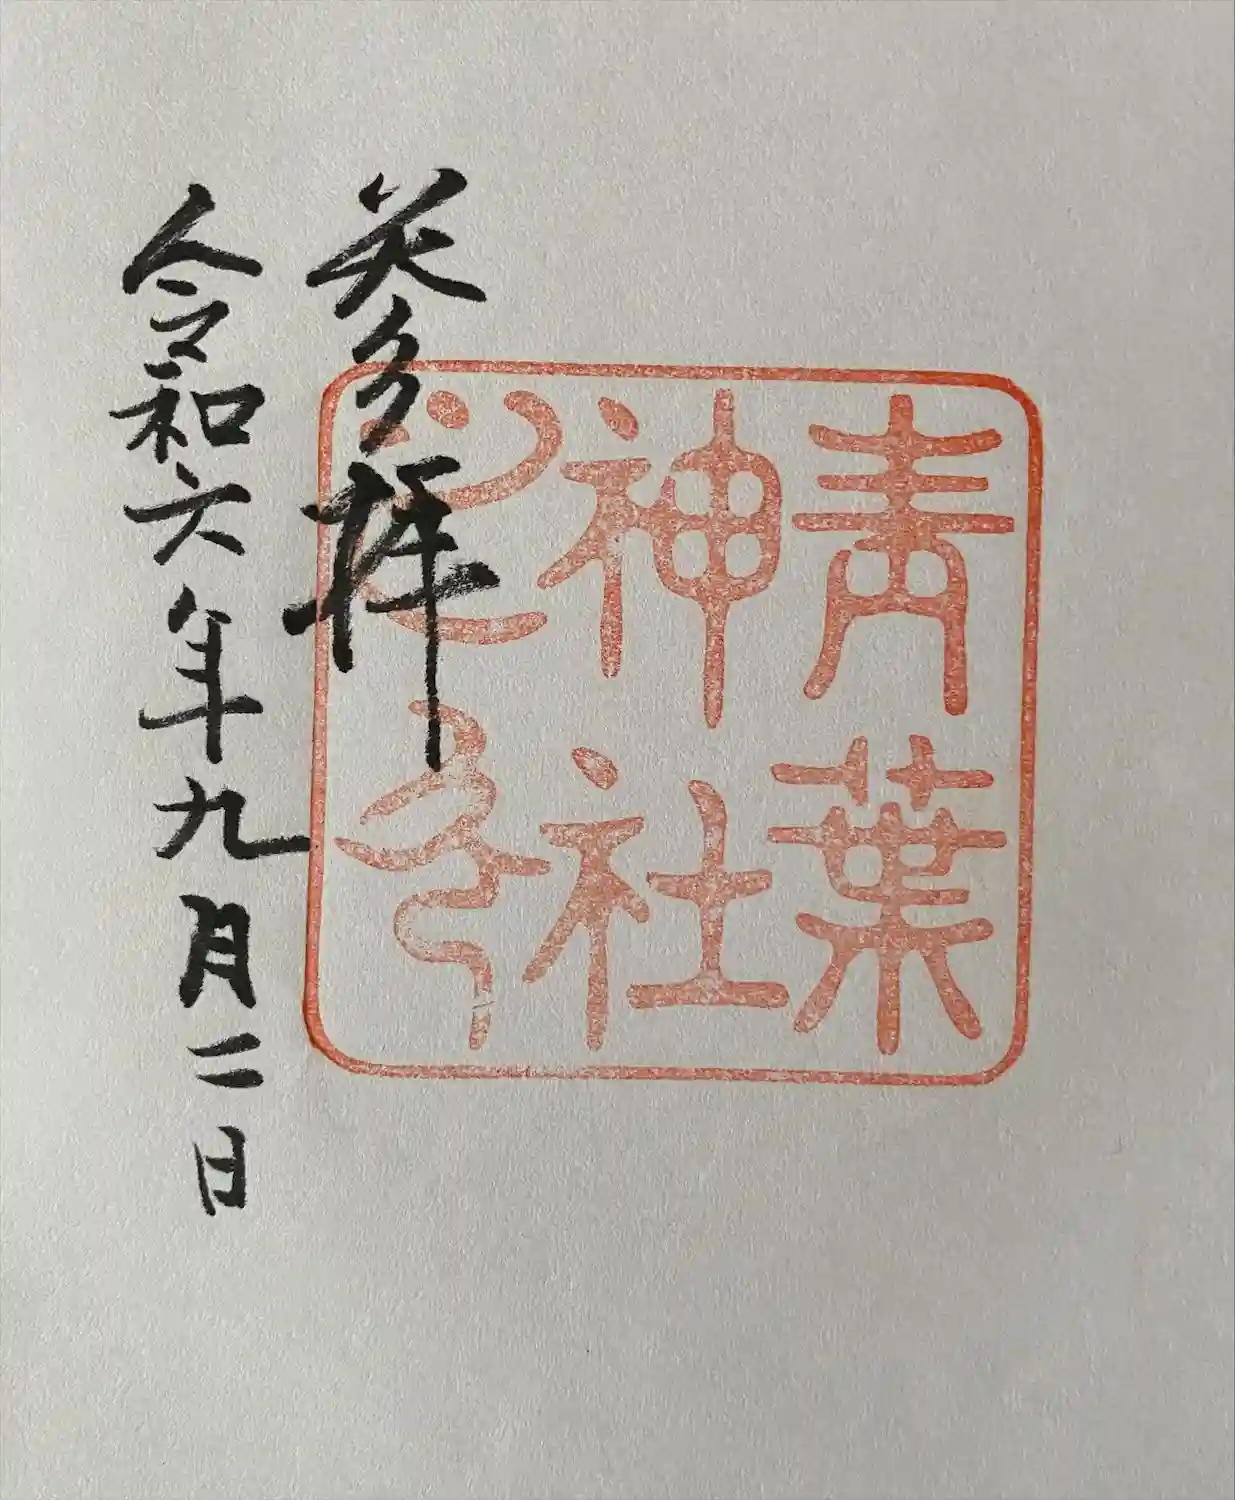 青葉
神社
参拝
令和六年九月二日